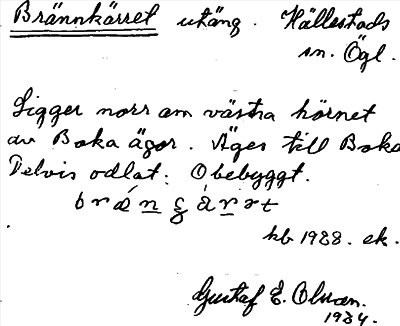 Brännkärret utäng. Hällestads
sn. Ögl.
Ligger norr om västra hörnet
av Boka ägor. Äges till Boka
Delvis odlat. Obebyggt.
kb 1988. ek.
Gustaf E.
1934.